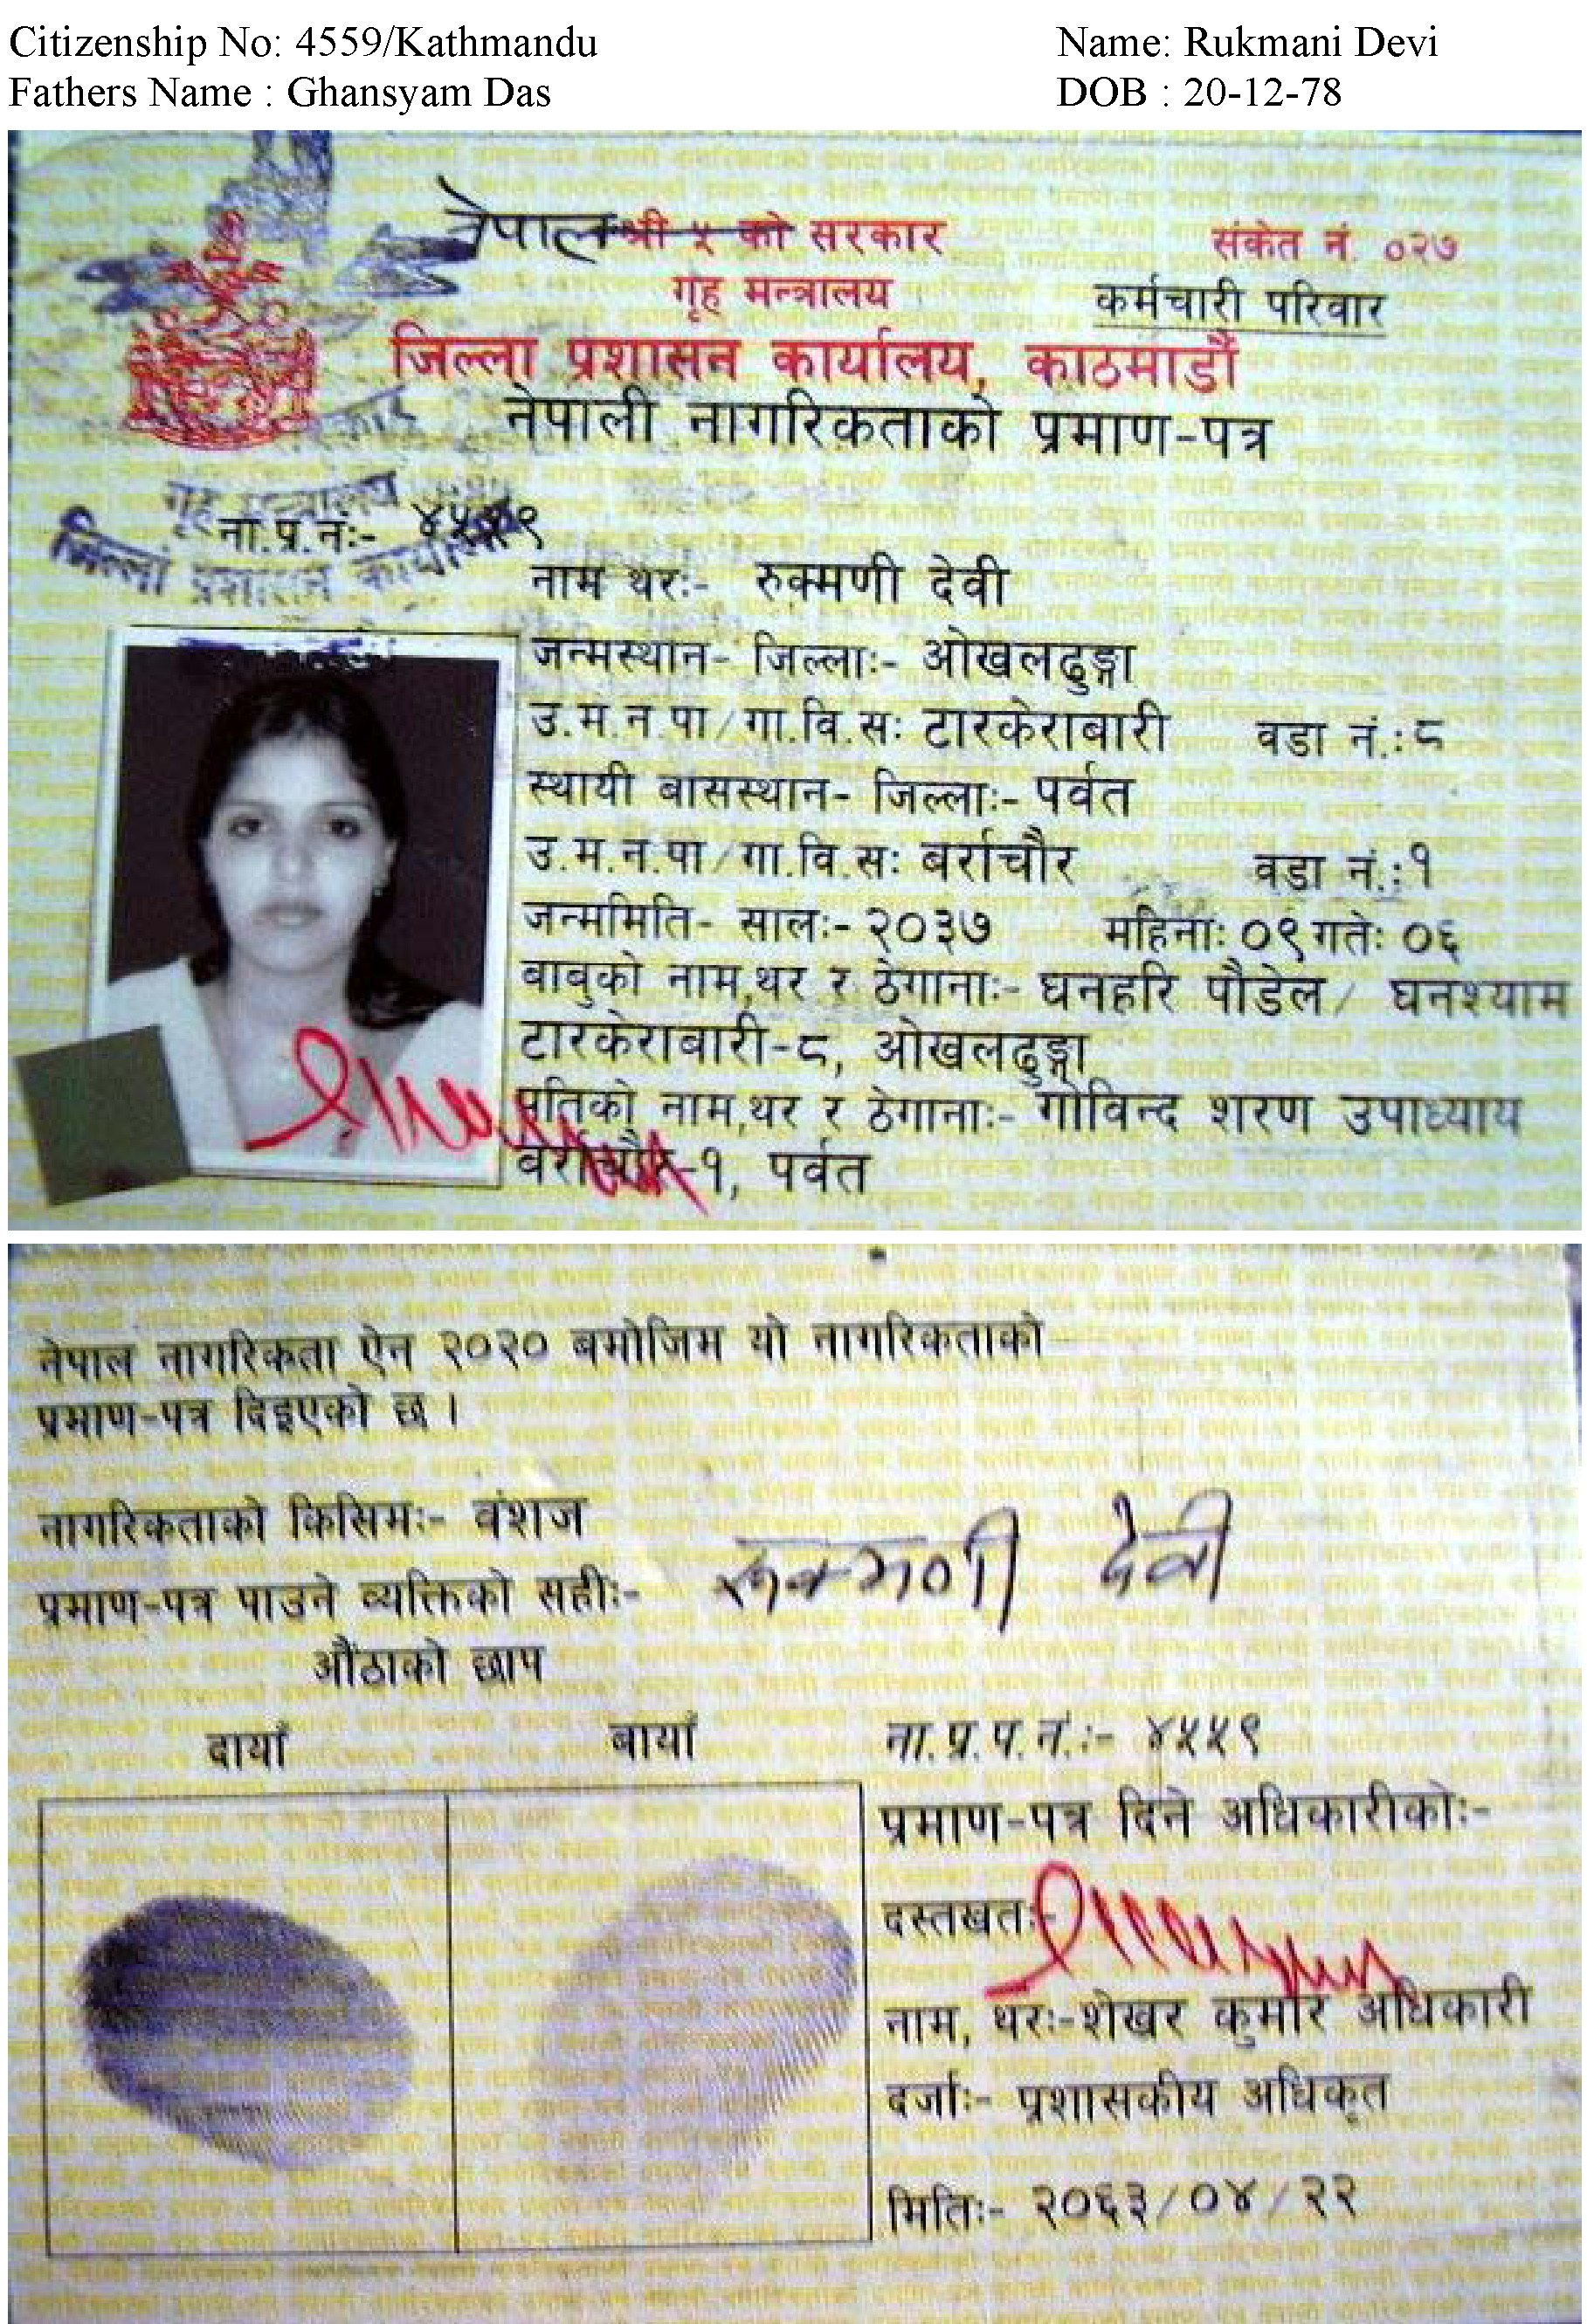 Citizenship No: 4559/Kathmandu Name: Rukmani Devi
Fathers Name : Ghansyam Das DOB : 20-12-78
नेपाल श्री ५ को सरकार संकेत नं. ०२७
गृह मन्त्रालय कर्मचारी परिवार
जिल्ला प्रशासन कार्यालय, काठमाडौं
नेपाली नागरिकताको प्रमाण-पत्र
गृह मन्त्रालय
ना.प्र.नः- ४५५९
जिल्ला प्रशासन कार्यालय
नाम थरः- रुक्मणी देवी
जन्मस्थान- जिल्लाः- ओखलढुङ्गा
उ.म.न.पा/गा.वि.सः टारकेराबारी वडा नं.:८
स्थायी बासस्थान- जिल्लाः- पर्वत
उ.म.न.पा/गा.वि.सः बर्राचौर वडा नं.:१
जन्ममिति- सालः- २०३७ महिनाः ०९ गतेः ०६
बाबुको नाम,थर र ठेगानाः- घनहरि पौडेल/ घनश्याम
टारकेराबारी-८, ओखलढुङ्गा
पतिको नाम,थर र ठेगानाः- गोविन्द शरण उपाध्याय
बर्राचौर-१, पर्वत
नेपाल नागरिकता ऐन २०२० बमोजिम यो नागरिकताको
प्रमाण-पत्र दिइएको छ ।
नागरिकताको किसिमः- वंशज
प्रमाण-पत्र पाउने व्यक्तिको सहीः- रुक्मणी देवी
औंठाको छाप
दायाँ बायाँ
ना.प्र.प.नं.:- ४५५९
प्रमाण-पत्र दिने अधिकारीकोः-
दस्तखतः-
नाम, थरः-शेखर कुमार अधिकारी
दर्जाः- प्रशासकीय अधिकृत
मितिः- २०६३/०४/२२